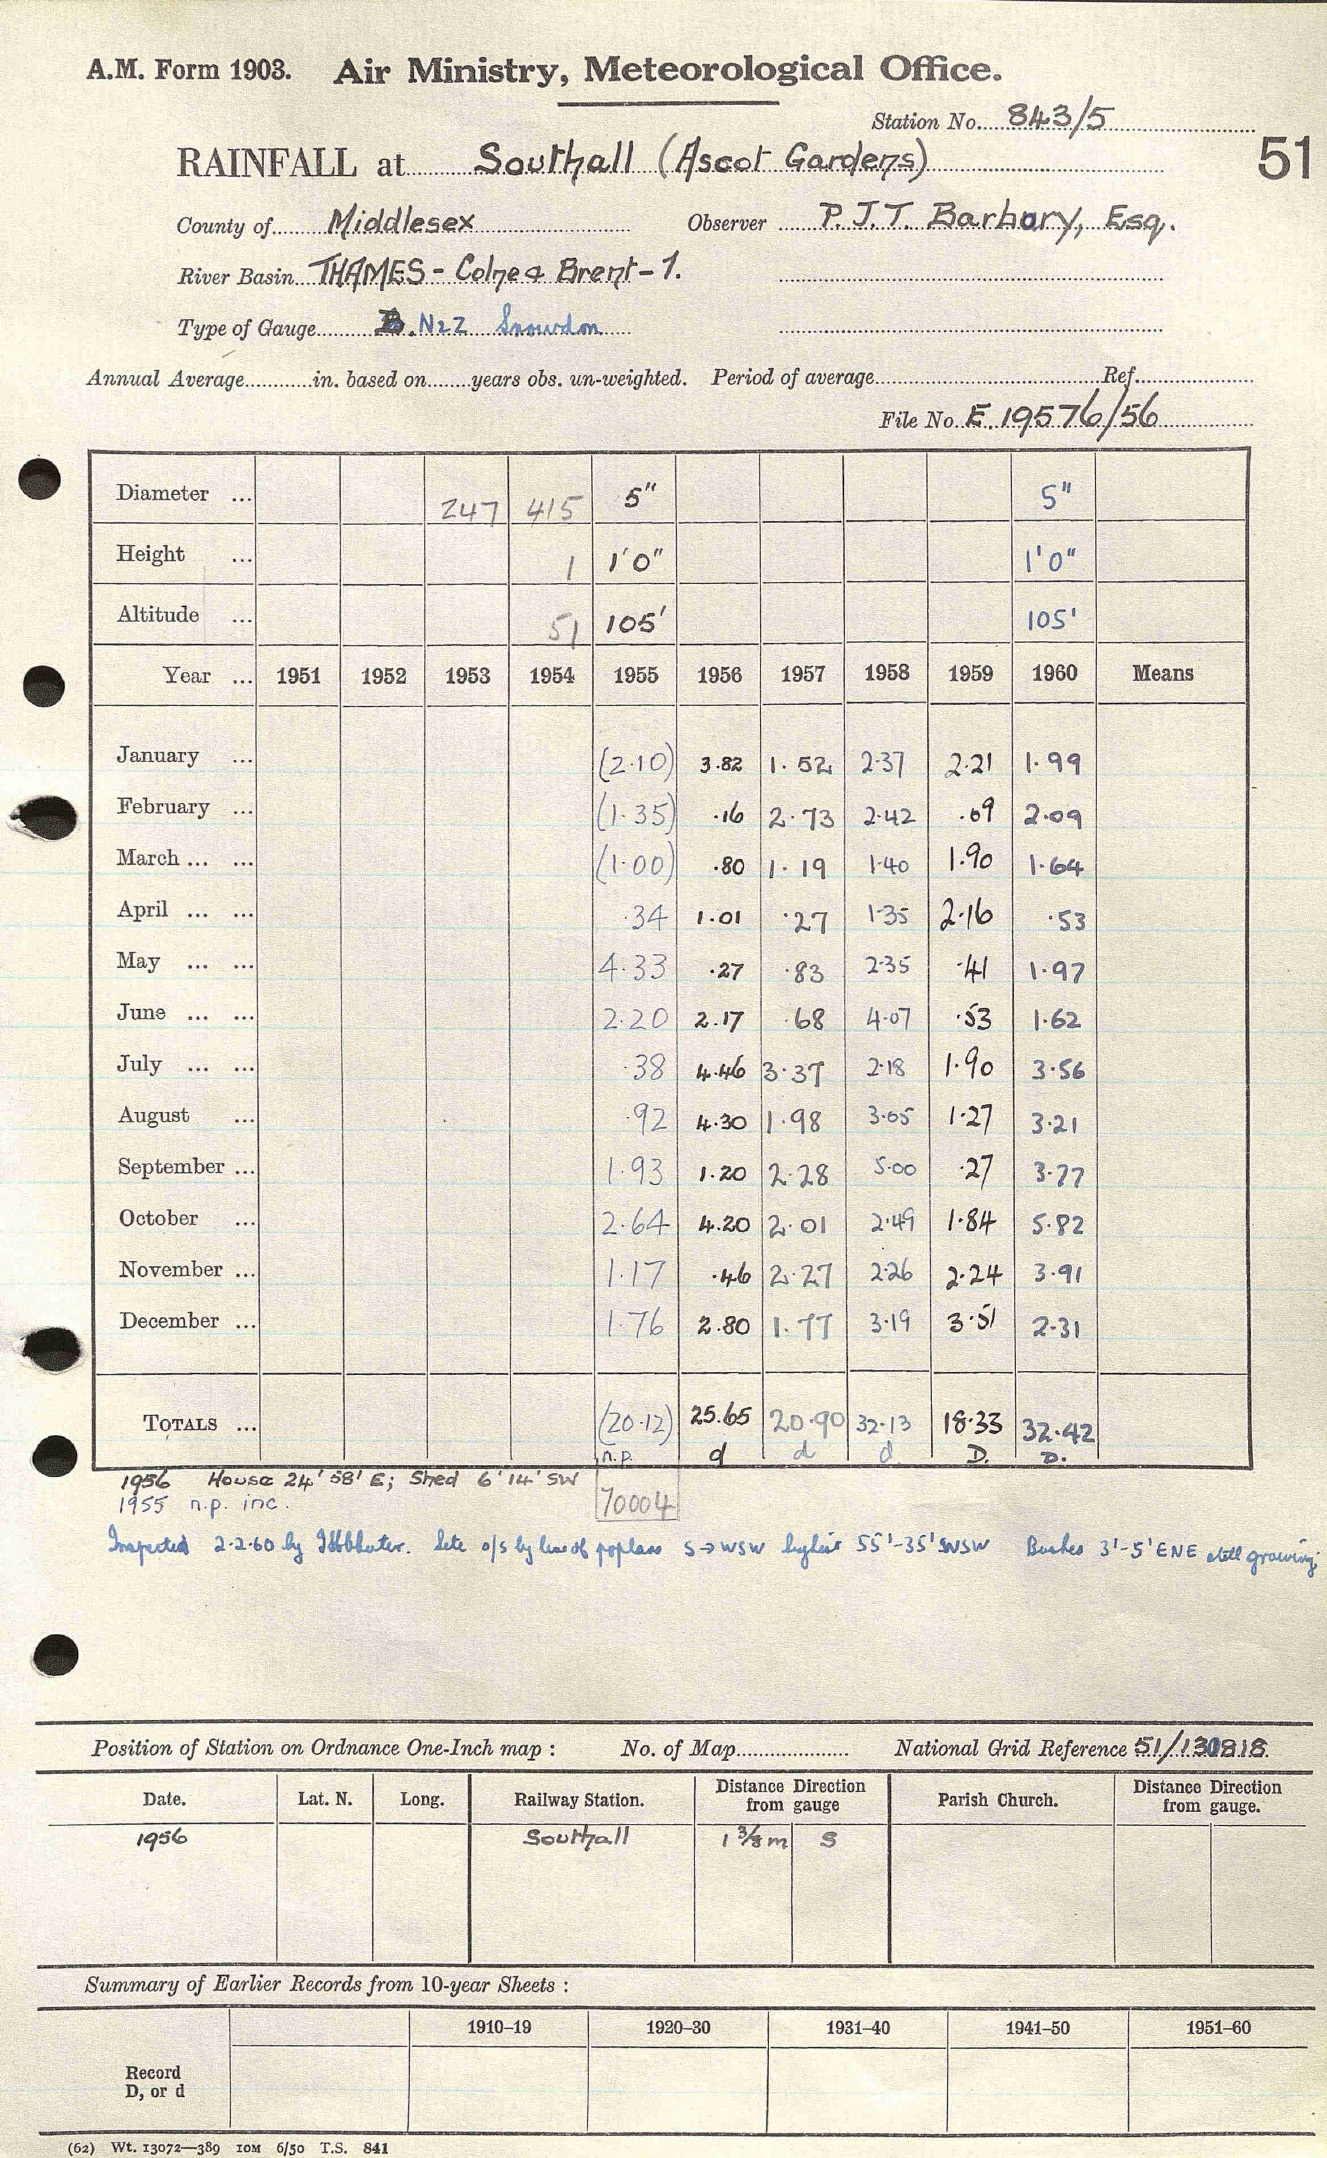 A.M. Form 1903. Air Ministry, Meteorological Office.
Station No. 843/5
RAINFALL at Southall (Ascot Gardens)
51
County of Middlesex Observer P.J.T. Barbary, Esq.
River Basin THAMES - Colne & Brent - 1.
Type of Gauge N2Z Snowdon
Annual Average in. based on years obs. un-weighted. Period of average Ref.
File No. E.19576/56
Diameter ... 247 415 5" 5"
Height ... 1 1'0" 1'0"
Altitude ... 51 105' 105'
Year ... 1951 1952 1953 1954 1955 1956 1957 1958 1959 1960 Means
January ... (2.10) 3.82 1.52 2.37 2.21 1.99
February ... (1.35) .16 2.73 2.42 .09 2.09
March ... ... (1.00) .80 1.19 1.40 1.90 1.64
April ... ... .34 1.01 .27 1.35 2.16 .53
May ... ... 4.33 .27 .83 2.35 .41 1.97
June ... ... 2.20 2.17 .68 4.07 .53 1.62
July ... ... .38 4.46 3.37 2.18 1.90 3.56
August ... .92 4.30 1.98 3.05 1.27 3.21
September ... 1.93 1.20 2.28 5.00 .27 3.77
October ... 2.64 4.20 2.01 2.49 1.84 5.82
November ... 1.17 .46 2.27 2.26 2.24 3.91
December ... 1.76 2.80 1.77 3.19 3.51 2.31
TOTALS ... (20.12) 25.65 20.90 32.13 18.33 32.42
n.p. d d d D. D.
1956 House 24' 58' E; Shed 6' 14' SW
1955 n.p. inc.
70004
Inspected 2.2.60 by Site o/s by line of poplars S→WSW highest 55'-35' WSW Bushes 3'-5' ENE still growing.
Position of Station on Ordnance One-Inch map : No. of Map National Grid Reference 51/130818
Date. Lat. N. Long. Railway Station. Distance Direction from gauge Parish Church. Distance Direction from gauge.
1956 Southall 1 3/8 m S
Summary of Earlier Records from 10-year Sheets :
1910–19 1920–30 1931–40 1941–50 1951–60
Record
D, or d
(62) Wt. 13072—389 10M 6/50 T.S. 841